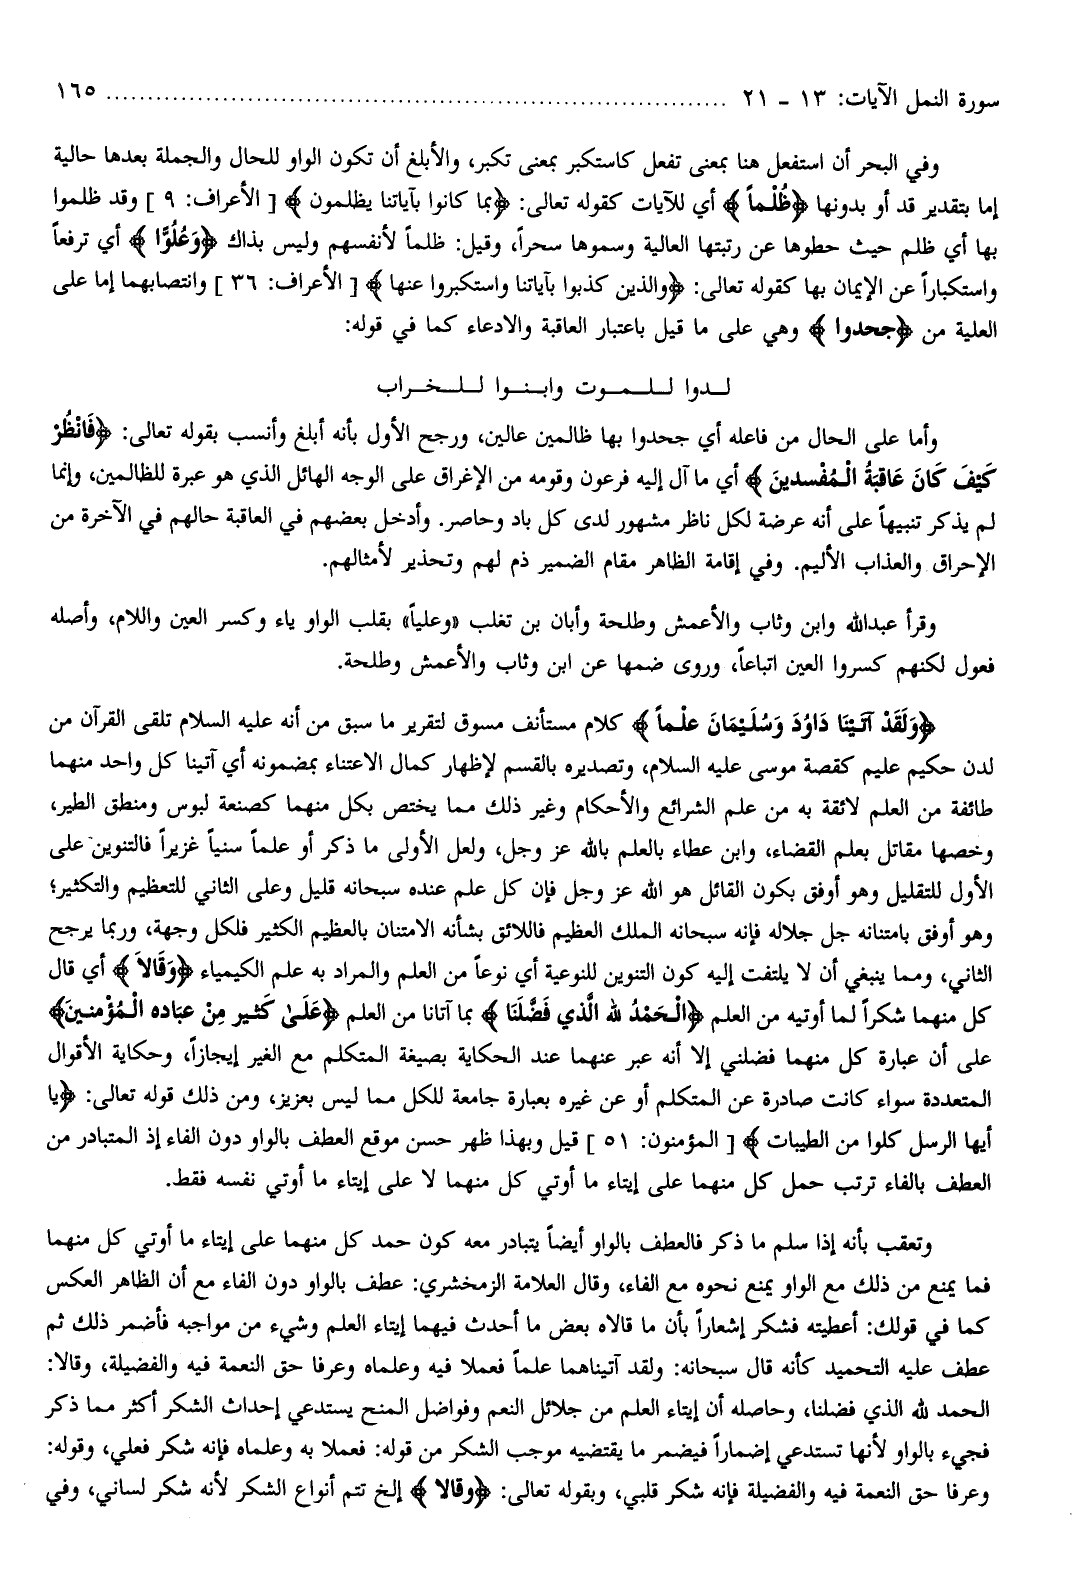 سورة النمل الآيات: ١٣ - ٢١ ........................................ ١٦٥
وفي البحر أن استفعل هنا بمعنى تفعل كاستكبر بمعنى تكبر، والأبلغ أن تكون الواو للحال والجملة بعدها حالية
إما بتقدير قد أو بدونها ﴿ظُلْماً﴾ أي للآيات كقوله تعالى: ﴿بما كانوا بآياتنا يظلمون﴾ [ الأعراف: ٩ ] وقد ظلموا
بها أي ظلم حيث حطوها عن رتبتها العالية وسموها سحراً، وقيل: ظلماً لأنفسهم وليس بذاك ﴿وَعُلُوًّا﴾ أي ترفعاً
واستكباراً عن الإيمان بها كقوله تعالى: ﴿والذين كذبوا بآياتنا واستكبروا عنها﴾ [ الأعراف: ٣٦ ] وانتصابهما إما على
العلية من ﴿جحدوا﴾ وهي على ما قيل باعتبار العاقبة والادعاء كما في قوله:
لــدوا لــلــمــوت وابــنــوا لــلــخــراب
وأما على الحال من فاعله أي جحدوا بها ظالمين عالين، ورجح الأول بأنه أبلغ وأنسب بقوله تعالى: ﴿فَانْظُرْ
كَيْفَ كَانَ عَاقبَةُ الْمُفْسدينَ﴾ أي ما آل إليه فرعون وقومه من الإغراق على الوجه الهائل الذي هو عبرة للظالمين، وإنما
لم يذكر تنبيهاً على أنه عرضة لكل ناظر مشهور لدى كل باد وحاصر. وأدخل بعضهم في العاقبة حالهم في الآخرة من
الإحراق والعذاب الأليم. وفي إقامة الظاهر مقام الضمير ذم لهم وتحذير لأمثالهم.
وقرأ عبدالله وابن وثاب والأعمش وطلحة وأبان بن تغلب «وعلياً» بقلب الواو ياء وكسر العين واللام، وأصله
فعول لكنهم كسروا العين اتباعاً، وروى ضمها عن ابن وثاب والأعمش وطلحة.
﴿وَلَقَدْ آتَيْنَا دَاوُدَ وَسُلَيْمَانَ علْماً﴾ كلام مستأنف مسوق لتقرير ما سبق من أنه عليه السلام تلقى القرآن من
لدن حكيم عليم كقصة موسى عليه السلام، وتصديره بالقسم لإظهار كمال الاعتناء بمضمونه أي آتينا كل واحد منهما
طائفة من العلم لائقة به من علم الشرائع والأحكام وغير ذلك مما يختص بكل منهما كصنعة لبوس ومنطق الطير،
وخصها مقاتل بعلم القضاء، وابن عطاء بالعلم بالله عز وجل، ولعل الأولى ما ذكر أو علماً سنياً غزيراً فالتنوين على
الأول للتقليل وهو أوفق بكون القائل هو الله عز وجل فإن كل علم عنده سبحانه قليل وعلى الثاني للتعظيم والتكثير؛
وهو أوفق بامتنانه جل جلاله فإنه سبحانه الملك العظيم فاللائق بشأنه الامتنان بالعظيم الكثير فلكل وجهة، وربما يرجح
الثاني، ومما ينبغي أن لا يلتفت إليه كون التنوين للنوعية أي نوعاً من العلم والمراد به علم الكيمياء ﴿وَقَالاَ﴾ أي قال
كل منهما شكراً لما أوتيه من العلم ﴿الْحَمْدُ لله الَّذي فَضَّلَنَا﴾ بما آتانا من العلم ﴿عَلَىٰ كَثير مِنْ عبَاده الْمُؤْمنينَ﴾
على أن عبارة كل منهما فضلني إلا أنه عبر عنهما عند الحكاية بصيغة المتكلم مع الغير إيجازاً، وحكاية الأقوال
المتعددة سواء كانت صادرة عن المتكلم أو عن غيره بعبارة جامعة للكل مما ليس بعزيز، ومن ذلك قوله تعالى: ﴿يا
أيها الرسل كلوا من الطيبات﴾ [ المؤمنون: ٥١ ] قيل وبهذا ظهر حسن موقع العطف بالواو دون الفاء إذ المتبادر من
العطف بالفاء ترتب حمل كل منهما على إيتاء ما أوتي كل منهما لا على إيتاء ما أوتي نفسه فقط.
وتعقب بأنه إذا سلم ما ذكر فالعطف بالواو أيضاً يتبادر معه كون حمد كل منهما على إيتاء ما أوتي كل منهما
فما يمنع من ذلك مع الواو يمنع نحوه مع الفاء، وقال العلامة الزمخشري: عطف بالواو دون الفاء مع أن الظاهر العكس
كما في قولك: أعطيته فشكر إشعاراً بأن ما قالاه بعض ما أحدث فيهما إيتاء العلم وشيء من مواجبه فأضمر ذلك ثم
عطف عليه التحميد كأنه قال سبحانه: ولقد آتيناهما علماً فعملا فيه وعلماه وعرفا حق النعمة فيه والفضيلة، وقالا:
الحمد لله الذي فضلنا، وحاصله أن إيتاء العلم من جلائل النعم وفواضل المنح يستدعي إحداث الشكر أكثر مما ذكر
فجيء بالواو لأنها تستدعي إضماراً فيضمر ما يقتضيه موجب الشكر من قوله: فعملا به وعلماه فإنه شكر فعلي، وقوله:
وعرفا حق النعمة فيه والفضيلة فإنه شكر قلبي، وبقوله تعالى: ﴿وقالا﴾ إلخ تتم أنواع الشكر لأنه شكر لساني، وفي